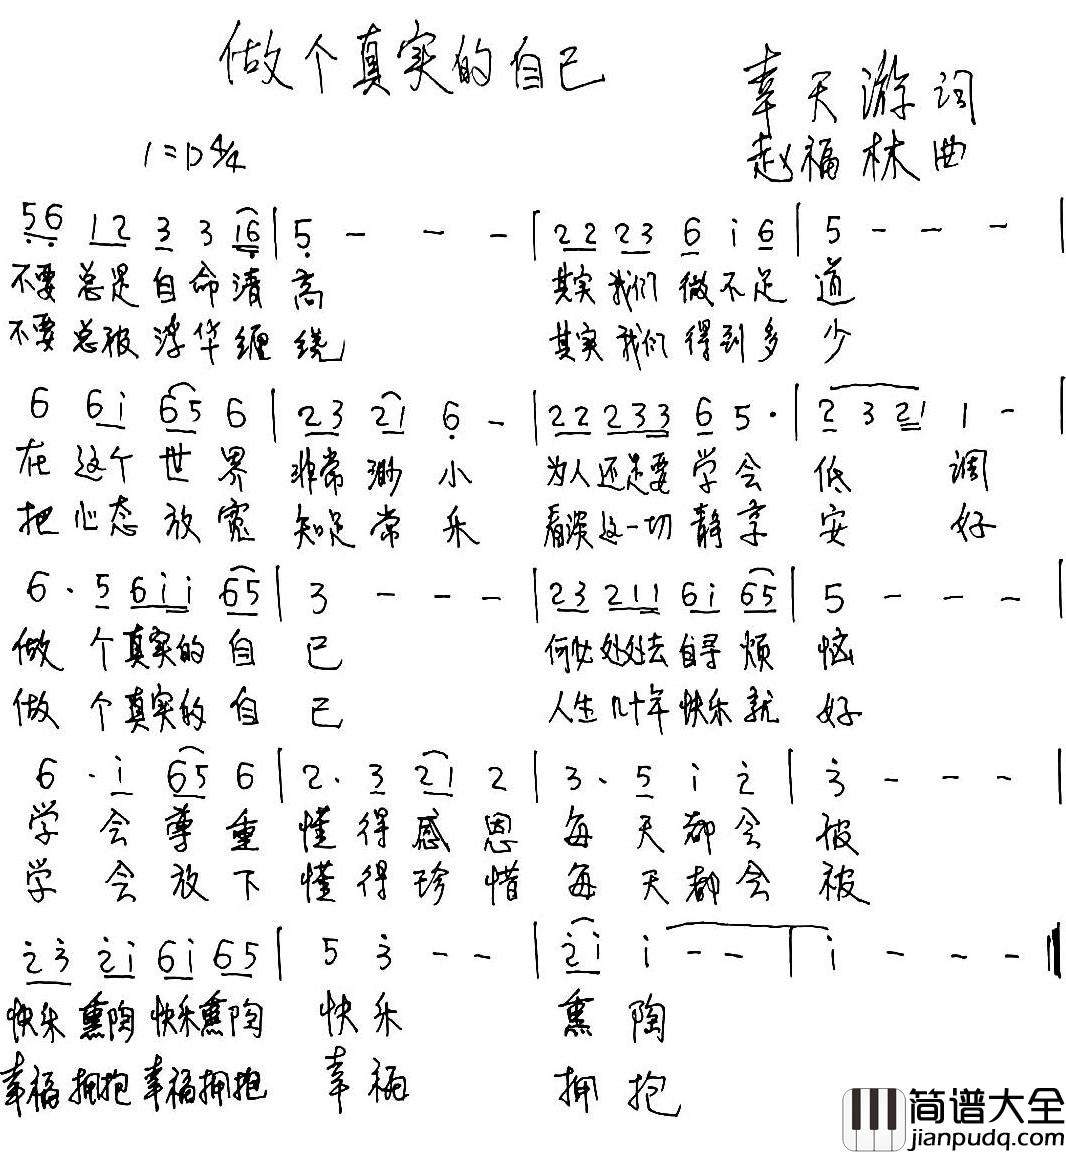 做个真实的自己
幸天游词
1=D 4/4
赵福林曲
56 12 3 3 16 | 5 - - - | 22 23 6 i 6 | 5 - - - |
不要总是自命清高 其实我们微不足道
不要总被浮华缠绕 其实我们得到多少
6 6i 65 6 | 23 21 6 - | 22 233 6 5· | 2 3 21 1 - |
在这个世界非常渺小 为人还是要学会低调
把心态放宽知足常乐 看淡这一切静享安好
6· 5 6ii 65 | 3 - - - | 23 211 6i 65 | 5 - - - |
做个真实的自己 何必处处去自寻烦恼
做个真实的自己 人生几十年快乐就好
6· i 65 6 | 2· 3 21 2 | 3· 5 i 2 | 3 - - - |
学会尊重懂得感恩每天都会被
学会放下懂得珍惜每天都会被
23 2i 6i 65 | 5 3 - - | 2i i - - | i - - - ‖
快乐熏陶快乐熏陶快乐熏陶
幸福拥抱幸福拥抱幸福拥抱
简谱大全
jianpudq.com